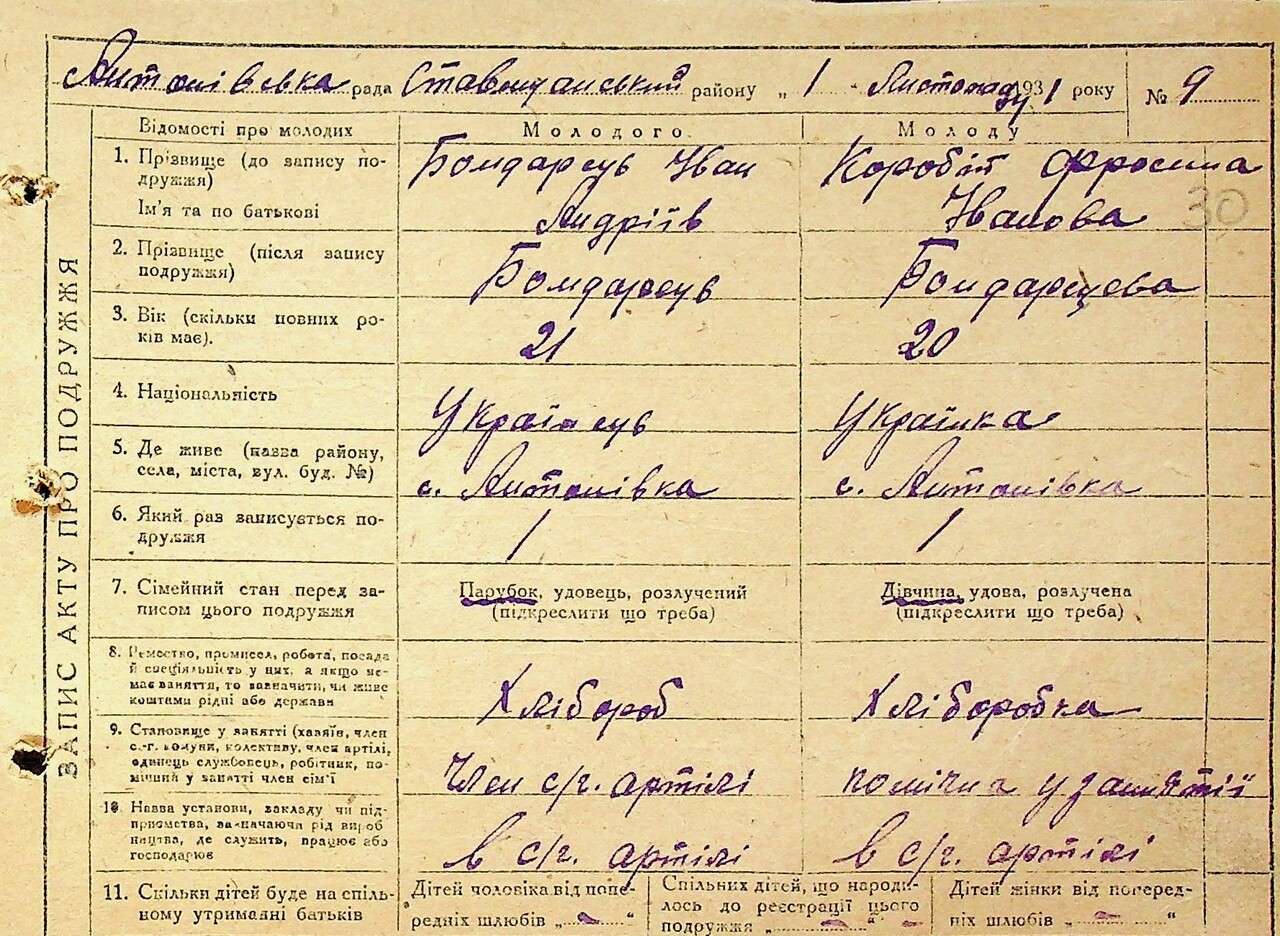 Антонівська рада Ставищанський району „ 1 " Листопаду 1931 року № 9
ЗАПИС АКТУ ПРО ПОДРУЖЖЯ
Відомості про молодих
Молодого
Молоду
1. Прізвище (до запису по-
дружжя)
Ім'я та по батькові
Бондарець Іван
Андріїв
Коробій Фросина
Іванова
30
2. Прізвище (після запису
подружжя)
Бондарець
Бондарцева
3. Вік (скільки повних ро-
ків має).
21
20
4. Національність
Українець
Українка
5. Де живе (назва району,
села, міста, вул. буд. №)
с. Антонівка
с. Антонівка
6. Який раз записується по-
дружжя
1
1
7. Сімейний стан перед за-
писом цього подружжя
Парубок, удовець, розлучений
(підкреслити що треба)
Дівчина, удова, розлучена
(підкреслити що треба)
8. Ремество, промисел, робота, посада
й спеціяльність у них, а якщо не-
має заняття, то зазначити, чи живе
коштами рідні або держави
Хлібороб
Хліборобка
9. Становище у занятті (хазяїн, член
с.-г. комуни, колективу, член артілі,
одинець службовець, робітник, по-
мічний у занятті член сім'ї
Член с/г. артілі
помічна у занятії
10 Назва установи, закладу чи під-
приємства, зазначаючи рід вироб
ництва, де служить, працює або
господарює
в с/г. артілі
в с/г. артілі
11. Скільки дітей буде на спіль-
ному утриманні батьків
Дітей чоловіка від попе-
редніх шлюбів „ - "
Спільних дітей, що народи-
лось до реєстрації цього
подружжя „ - "
Дітей жінки від поперед-
ніх шлюбів „ - "